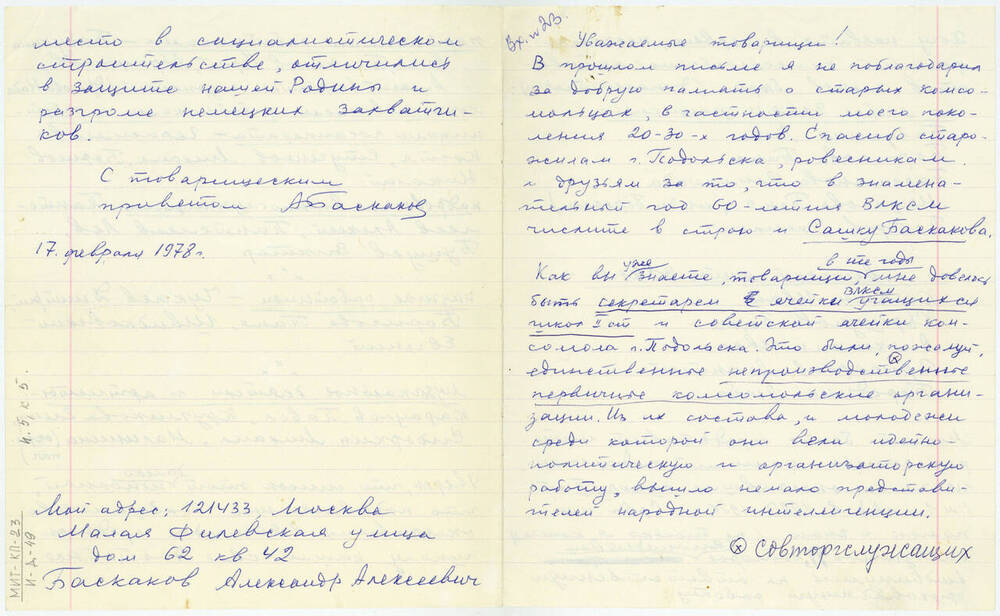 место в социалистическом
строительстве, отличились
в защите нашей Родины и
разгроме немецких захватчи-
ков.
С товарищеским
приветом АБаскаков
17 февраля 1978 г.
Мой адрес: 121433 Москва
Малая Филевская улица
дом 62 кв. 42
Баскаков Александр Алексеевич
МИТ-КП-23
И-Д-49
И. 5, К 5.
Вх. № 23.
Уважаемые товарищи!
В прошлом письме я не поблагодарил
за добрую память о старых комсо-
мольцах, в частности моего поко-
ления 20-30-х годов. Спасибо старо-
жилам г. Подольска, ровесникам
и друзьям за то, что в знамена-
тельный год 60-летия ВЛКСМ
числите в строю и Сашку Баскакова.
Как вы уже знаете, товарищи, в те годы мне довелось
быть секретарем ячейки ВЛКСМ учащихся
школ II ст и советской ячейки ком-
сомола г. Подольска. Это были, пожалуй,
единственные непроизводственные
первичные комсомольские органи-
зации. Из их состава, и молодежи
среди которой они вели идейно-
политическую и организаторскую
работу, вышло немало представи-
телей народной интеллигенции.
⊗ совторгслужащих